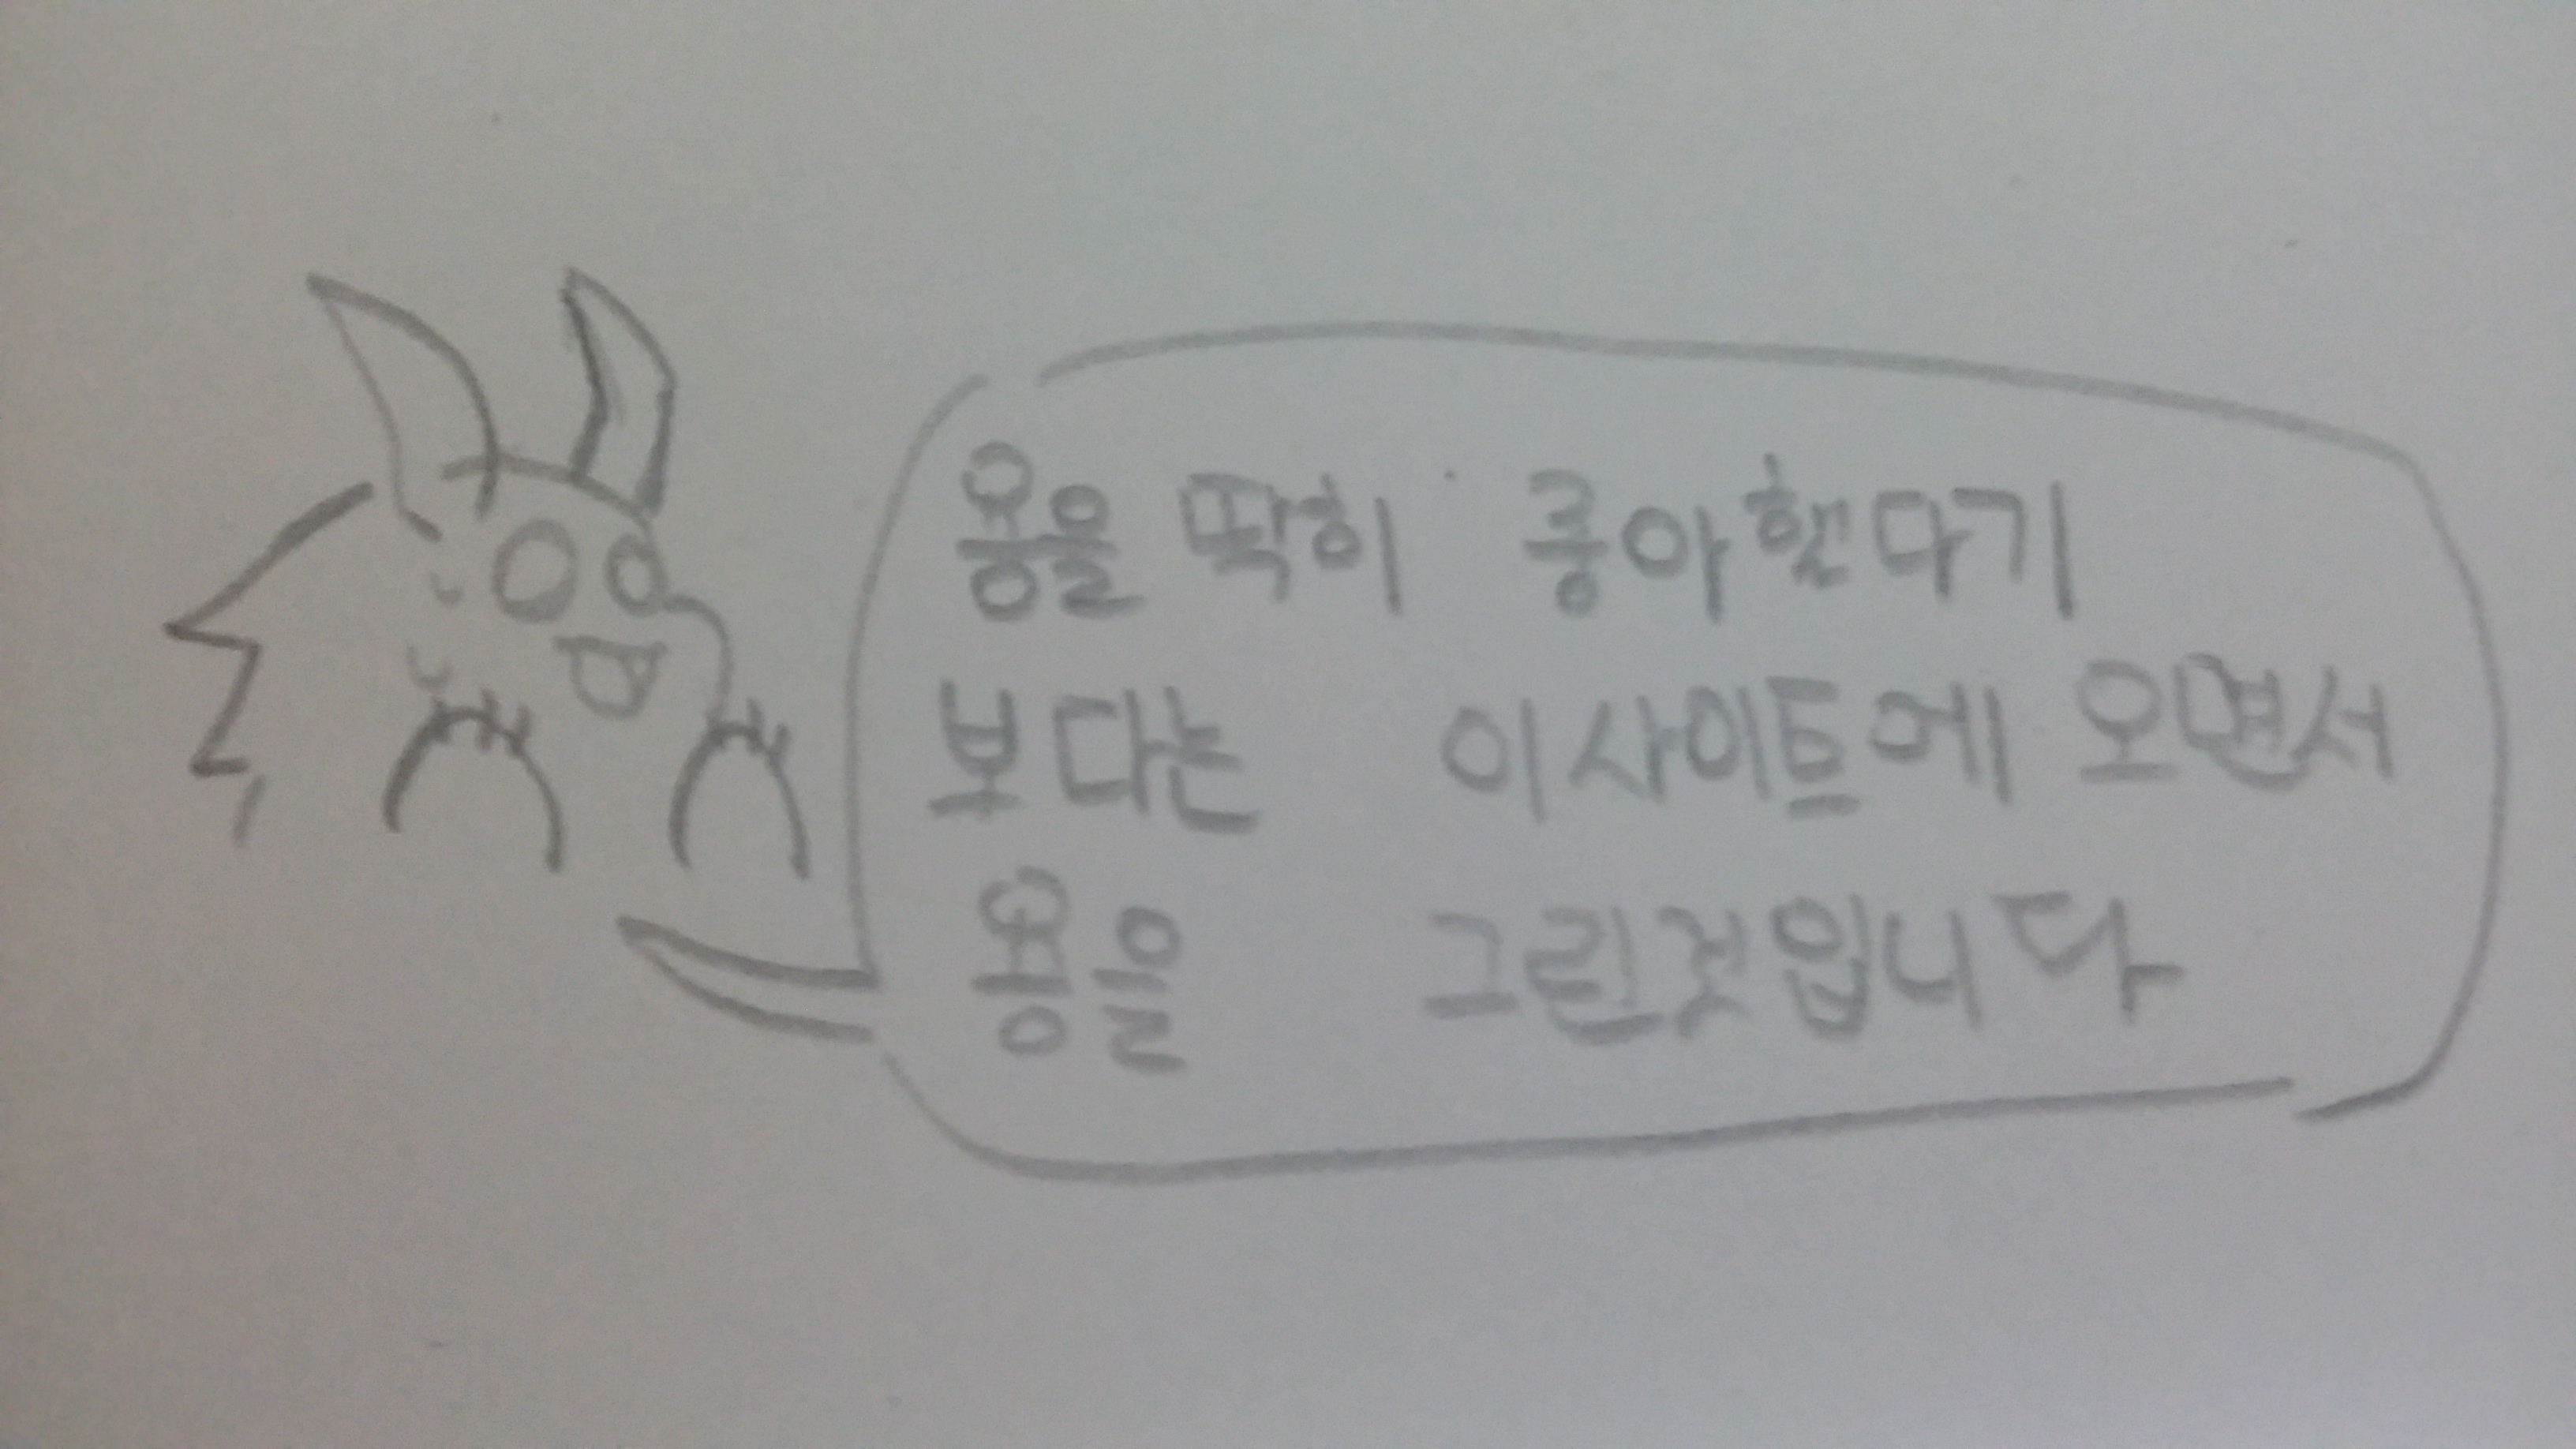 용을 딱히 좋아했다기
보다는 이사이트에 오면서
용을 그린것입니다